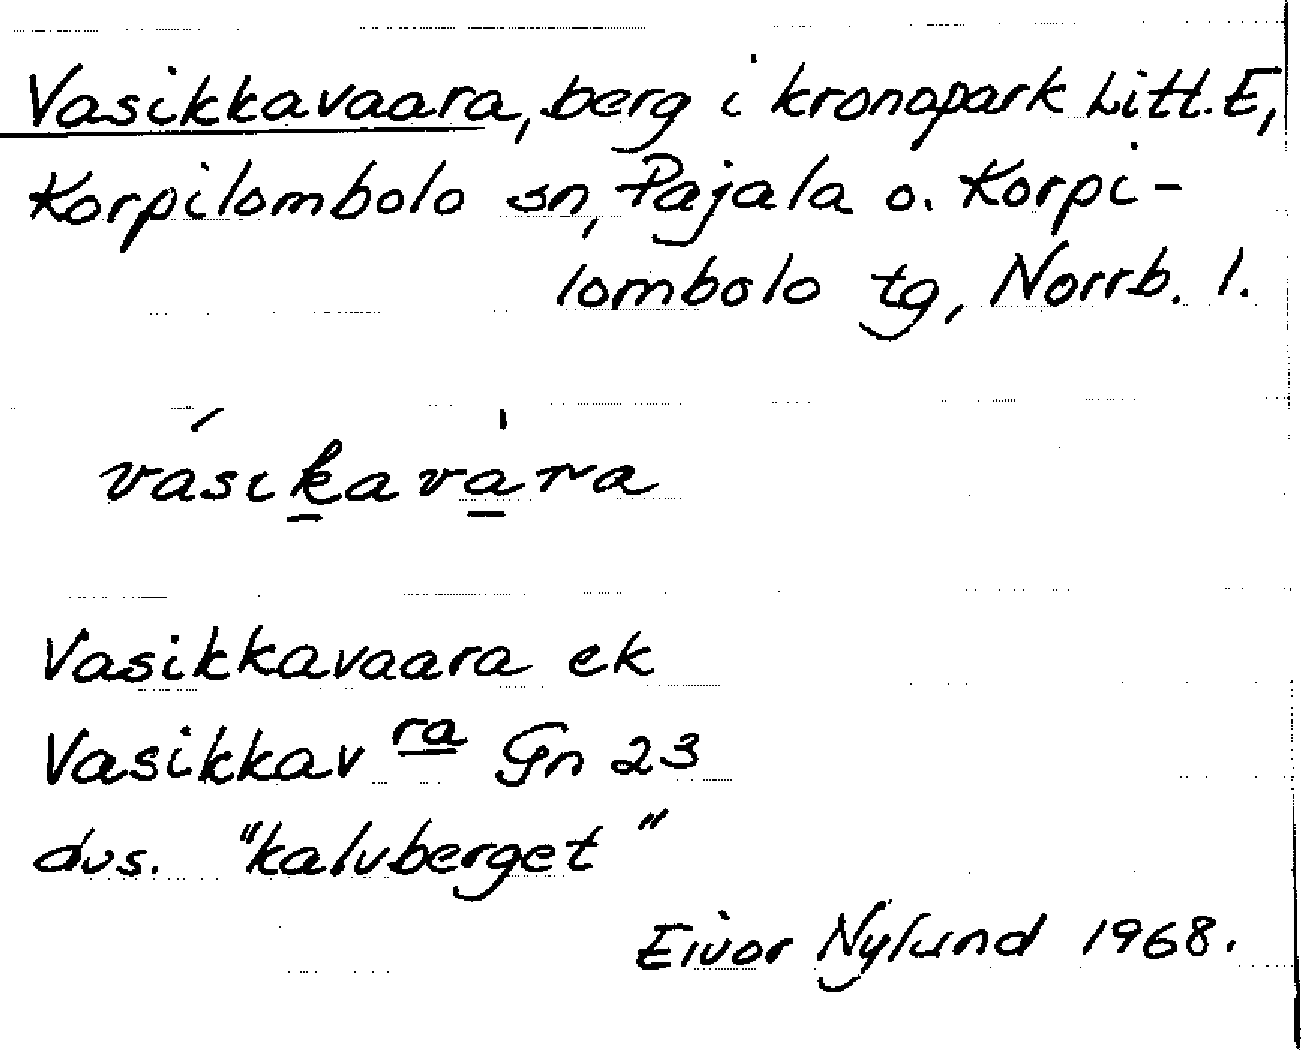 Vasikkavaara, berg i kronopark Litt. E,
Korpilombolo sn, Pajala o. Korpi-
lombolo tg, Norrb. l.
vásika̱va̱̍ra
Vasikkavaara ek
Vasikkav ra Gn 23
dvs. "kalvberget"
Eivor Nylund 1968.